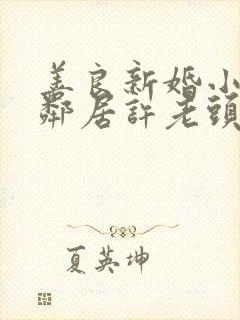 善良新婚小
鄰居許老頭
夏英坤